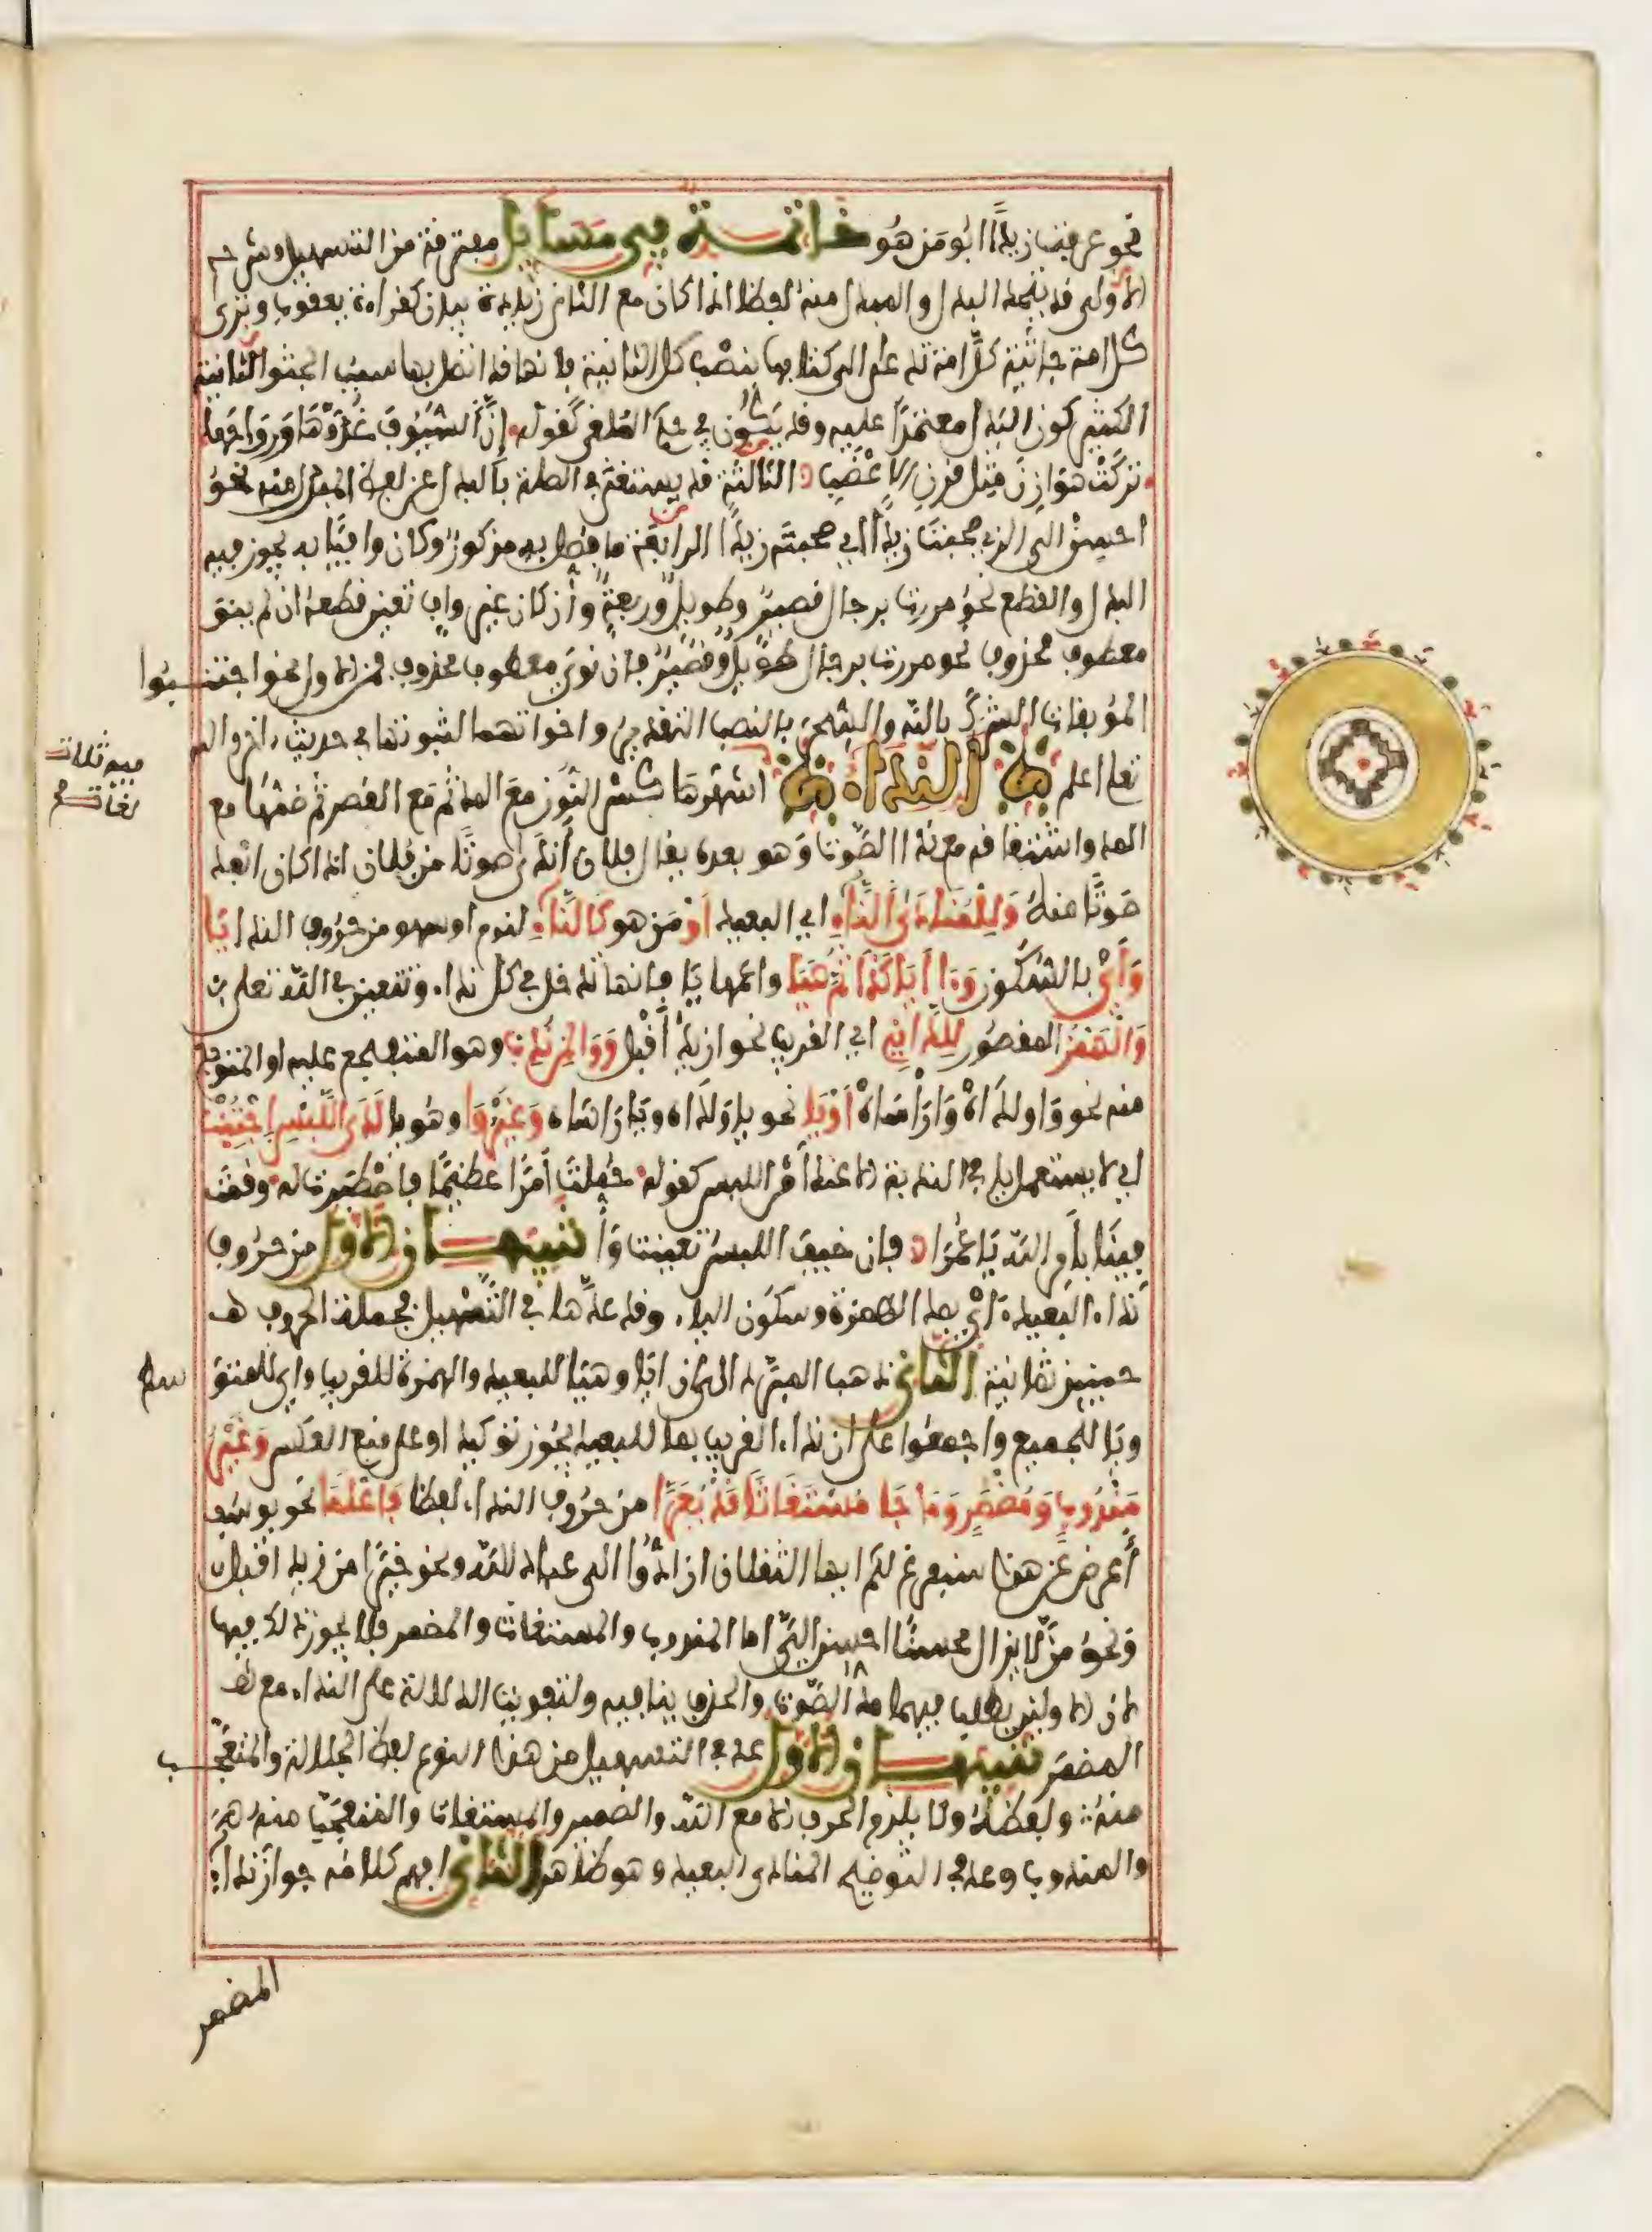 نحو عرفت زيدا ابو من هو خاتمة في مسايل متفرقة من التسهيل وشرحه
الاولى قد يتحد البدل والمبدل منه لفظا اذا كان مع الثاني زيادة بيان كقراءة يعقوب وترى
كل امة جاثية كل امة تدعى الى كتابها بنصب كل الثانية فانها قد اتصل بها سبب الجثو الثانية
الكثير كون البدل معتمدا عليه وقد يكون في حكم الملغى كقوله ان السيوف غدوها ورواحها
تركت هوازن مثل قرن الاعضب الثالثة قد يستغنى في الصلة بالبدل عن لفظ المبدل منه نحو
احسن الى الذي صحبت زيدا اي صحبته زيدا الرابعة ما فصل به مذكور وكان وافيا به يجوز فيه
البدل والقطع نحو مررت برجال قصير وطويل وربعة وان كان غير واف تعين قطعه ان لم ينو
معطوف محذوف نحو مررت برجال طويل وقصير فان نوي معطوف محذوف فمن الاول نحو اجتنبوا
الموبقات الشرك بالله والسحر بالنصب التقدير واخواتهما لثبوتها في حديث اخر والله
تعلى اعلم النداء اشهرها كسر النون مع المد ثم مع القصر ثم ضمها مع
فيه ثلاث
لغات
المد واشتقاقه من ندا الصوت وهو بعده يقال فلان اندى صوتا من فلان اذا كان ابعد
صوتا منه وللمنادى الناء اي البعيد او من هو كالناء لنوم او سهو من حروف النداء يا
واي بالسكون وءا ايا كذا ثم هيا واعمها يا فانها تدخل في كل نداء وتتعين في الله تعلى
والهمز المقصور للداني اي القريب نحو ازيد اقبل ووا لمن ندب وهو المتفجع عليه او المتوجع
منه نحو واولداه واراساه او يا نحو يا ولداه ويا راساه وغير وا وهو يا لدى اللبس اجتنب
اي لا يستعمل يا في الندبة الا عند امن اللبس كقوله حملت امرا عظيما فاصطبرت له وقمت
فينا بامر الله يا عمرا فان خيف اللبس تعينت وا تنبيهان الاول من حروف
نداء البعيد اي بمد الهمزة وسكون الياء وقد عدها في التسهيل فجملة الحروف
حينيذ ثمانية الثاني ذهب المبرد الى ان ايا وهيا للبعيد والهمزة للقريب واي للمتو
سط
ويا للجميع واجمعوا على ان نداء القريب بما للبعيد يجوز توكيدا وعلى منع العكس وغير
مندوب ومضمر وما جا مستغاثا قد يعرى من حروف النداء لفظا فاعلما نحو يوسف
اعرض عن هذا سنفرغ لكم ايها الثقلان ان ادوا الي عباد الله ونحو خيرا من زيد اقبل
ونحو من لا يزال محسنا احسن الي اما المندوب والمستغاث والمضمر فلا يجوز ذلك فيها
لان الاولين يطلب فيهما مد الصوت والحذف ينافيه ولتفويت الدلالة على النداء مع
المضمر تنبيهان الاول عد في التسهيل من هذا النوع لفظ الجلالة والمتعجب
منه ولفظه ولا يلزم الحرف الا مع الله والضمير والمستغاث والمتعجب منه
والمندوب وعد في التوضيح المنادى البعيد وهو ظاهر الثاني افهم كلامه جواز نداء
المضمر